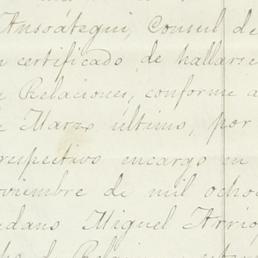 Ansoátegui, Consul de
certificado de hallarse
Relaciones, conforme a
Marzo último, por
respectivo encargo en
viembre de mil ocho
dano Miguel Arrio